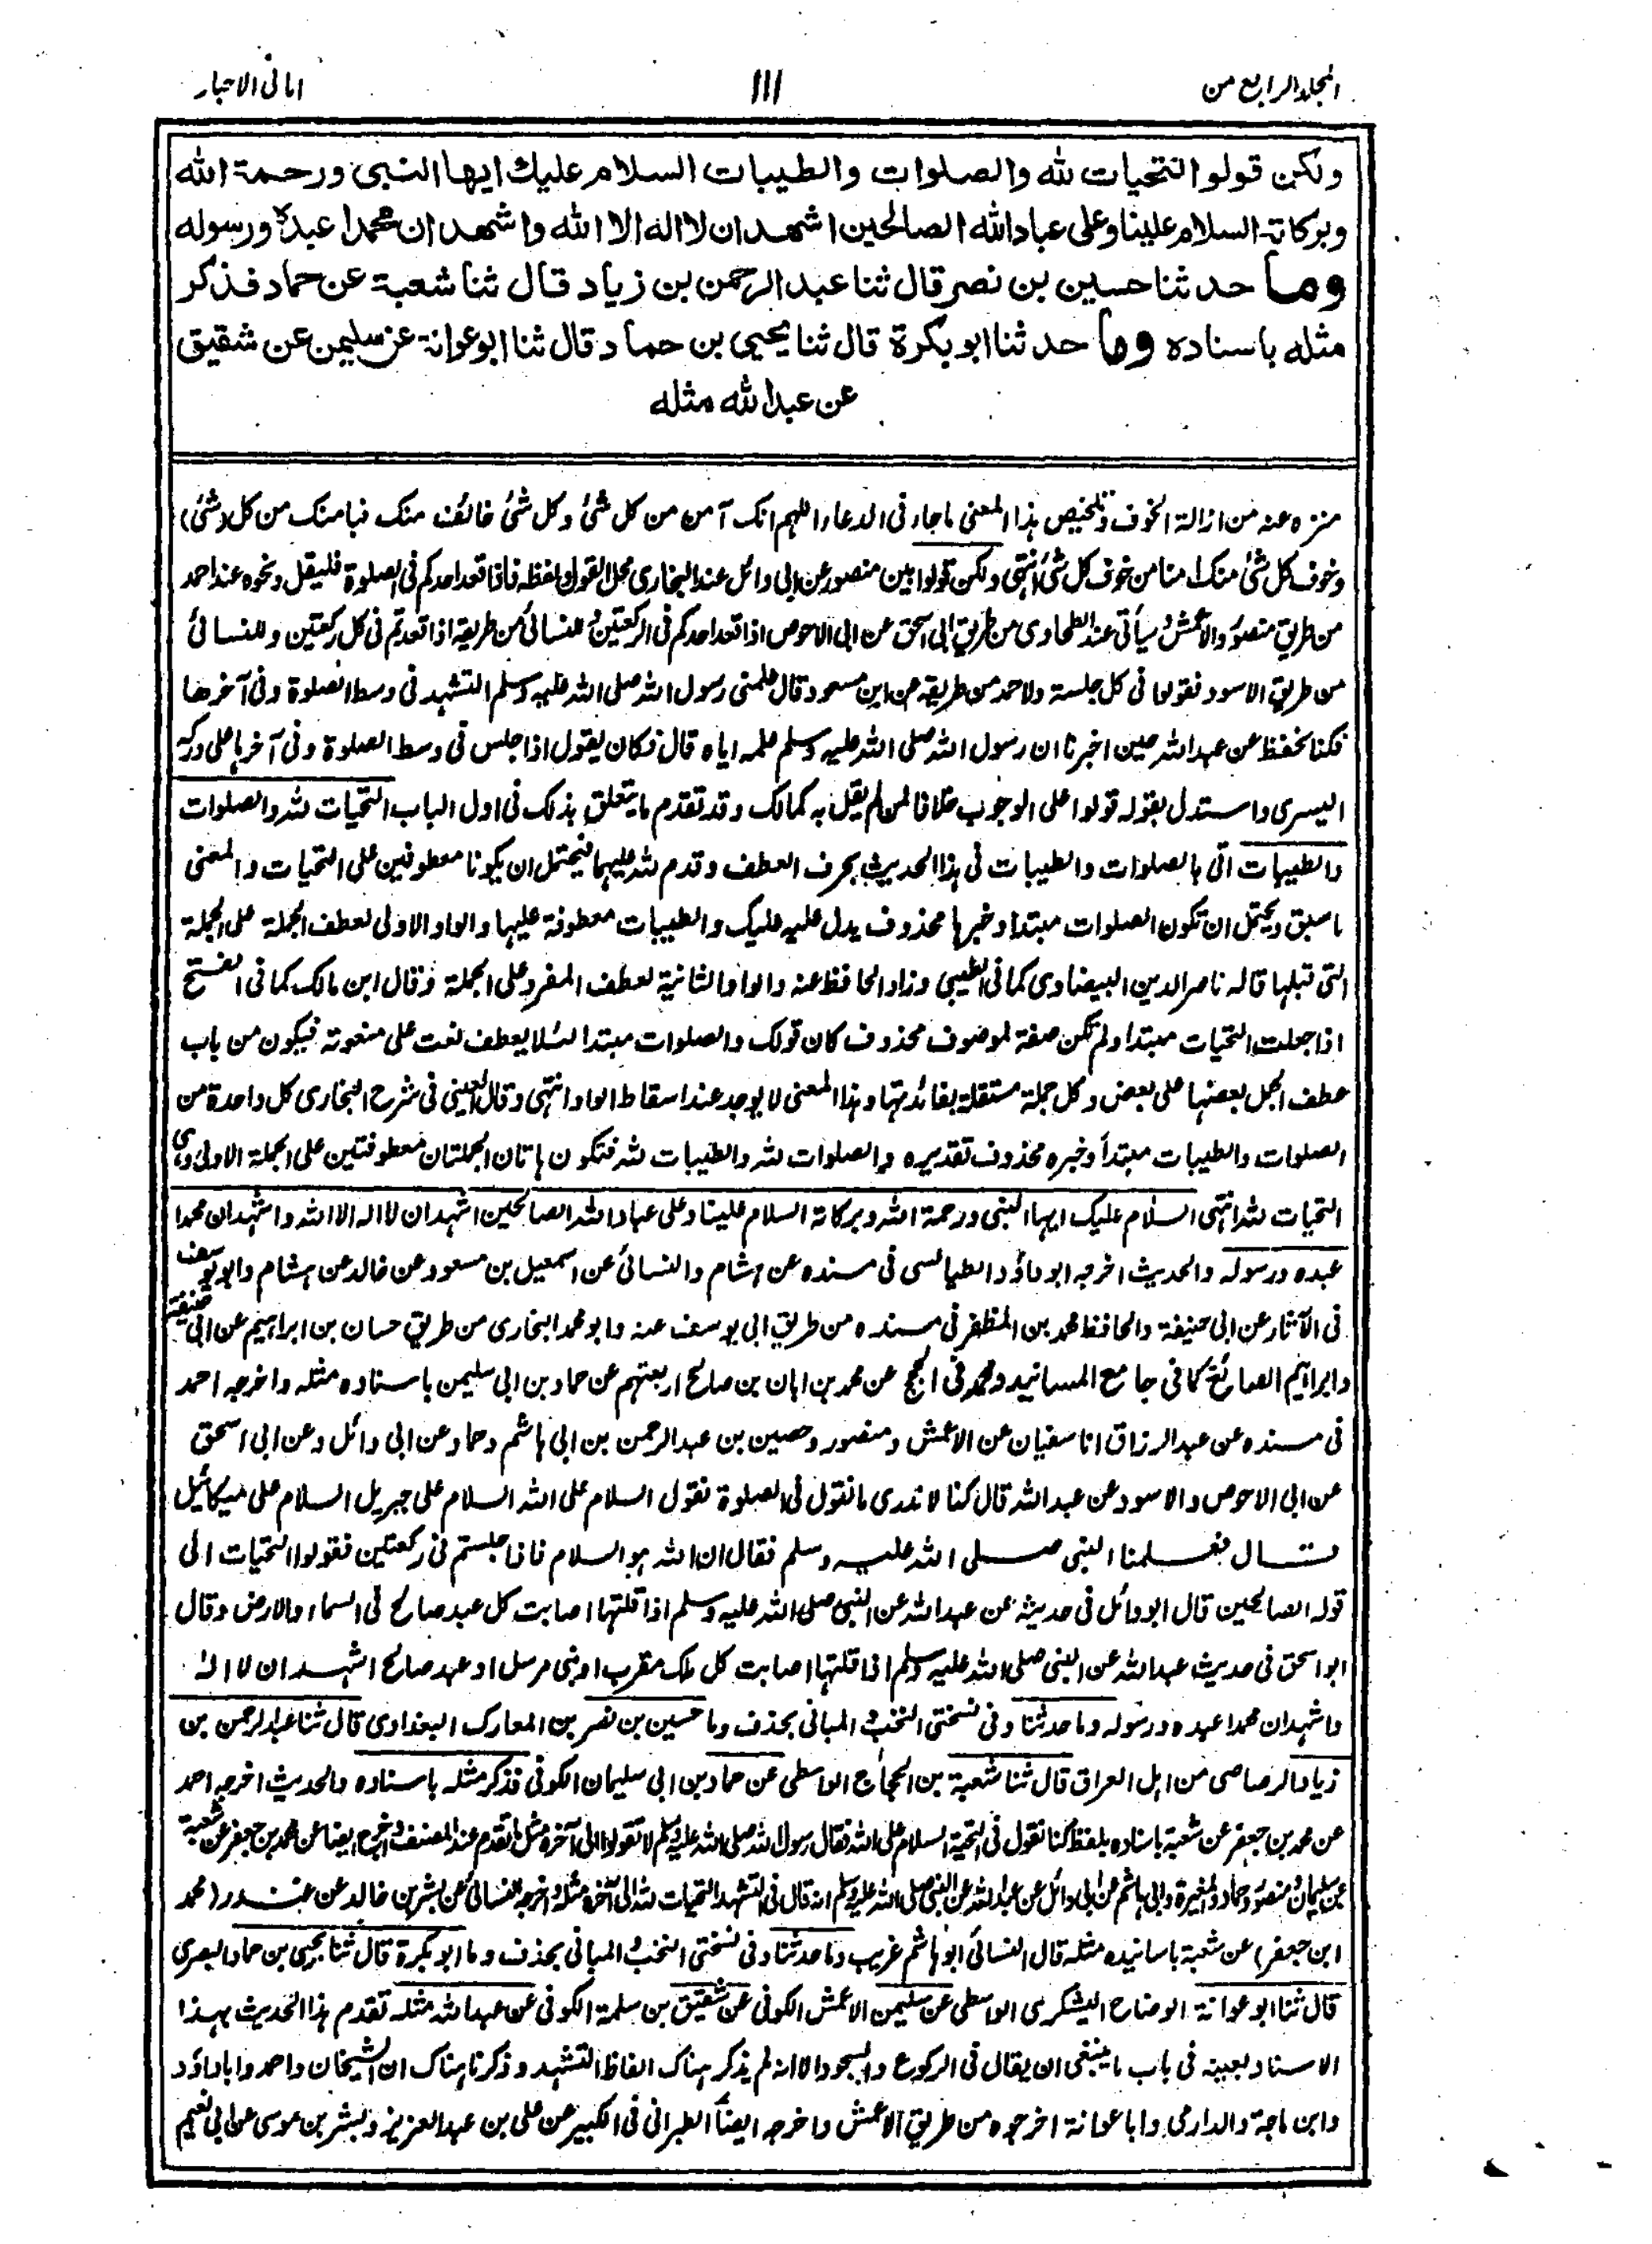 المجلد الرابع من
١١١
امانى الاحبار
ولكن قولوا التحيات لله والصلوات والطيبات السلام عليك ايها النبى ورحمة الله
وبركاته السلام علينا وعلى عباد الله الصالحين اشهد ان لا اله الا الله واشهد ان محمدا عبده ورسوله
وما حدثنا حسين بن نصر قال ثنا عبد الرحمن بن زياد قال ثنا شعبة عن حماد فذكر
مثله باسناده وما حدثنا ابو بكرة قال ثنا يحيى بن حماد قال ثنا ابو عوانة عن سليمن عن شقيق
عن عبد الله مثله
منزه عنه من ازالة الخوف وتلخيص هذا المعنى ماجاء فى الدعاء اللهم انك آمن من كل شئ وكل شئ خائف منك فبامنك من كل (شئ)
وخوف كل شئ منك امنا من خوف كل شئ انتهى ولكن قولوا بين منصور عن ابى وائل عند البخارى محل القول ولفظه فاذا قعد احدكم فى الصلوة فليقل ونحوه عند احمد
من طريق منصور والاعمش وسيأتى عند الطحاوى من طريق ابى اسحق عن ابى الاحوص اذا قعد احدكم فى الركعتين وللنسائى من طريقه اذا قعدتم فى كل ركعتين وللنسائى
من طريق الاسود فقولوا فى كل جلسة ولاحمد من طريقه عن ابن مسعود قال علمنى رسول الله صلى الله عليه وسلم التشهد فى وسط الصلوة وفى آخرها
فكنا نحفظ عن عبد الله حين اخبرنا ان رسول الله صلى الله عليه وسلم علمه اياه قال فكان يقول اذا جلس فى وسط الصلوة وفى آخرها على وركه
اليسرى واستدل بقوله قولوا على الوجوب خلافا لمن لم يقل به كمالك وقد تقدم ما يتعلق بذلك فى اول الباب التحيات لله والصلوات
والطيبات اتى بالصلوات والطيبات فى هذا الحديث بحرف العطف وقدم لله عليهما فيحتمل ان يكونا معطوفين على التحيات والمعنى
ما سبق ويحتمل ان تكون الصلوات مبتدا وخبرها محذوف يدل عليه عليك والطيبات معطوفة عليها والواو الاولى لعطف الجملة على الجملة
التى قبلها قاله ناصر الدين البيضاوى كما فى الطيبى وزاد الحافظ عنه والواو الثانية لعطف المفرد على الجملة وقال ابن مالك كما فى الفتح
اذا جعلت التحيات مبتدا ولم تكن صفة لموصوف محذوف كان قولك والصلوات مبتدا لئلا يعطف نعت على منعوته فيكون من باب
عطف الجمل بعضها على بعض وكل جملة مستقلة بفائدتها وهذا المعنى لا يوجد عند اسقاط الواو انتهى وقال العينى فى شرح البخارى كل واحدة من
الصلوات والطيبات مبتدأ وخبره محذوف تقديره والصلوات لله والطيبات لله فتكون هاتان الجملتان معطوفتين على الجملة الاولى وهى
التحيات لله انتهى السلام عليك ايها النبى ورحمة الله وبركاته السلام علينا وعلى عباد الله الصالحين اشهد ان لا اله الا الله واشهد ان محمدا
عبده ورسوله والحديث اخرجه ابو داؤد الطيالسى فى مسنده عن هشام والنسائى عن اسمعيل بن مسعود عن خالد عن هشام وابو يوسف
فى الآثار عن ابى حنيفة والحافظ محمد بن المظفر فى مسنده من طريق ابى يوسف عنه وابو محمد البخارى من طريق حسان بن ابراهيم عن ابى حنيفة
وابراهيم الصائغ كما فى جامع المسانيد ومحمد فى الحجج عن محمد بن ابان بن صالح اربعتهم عن حماد بن ابى سليمن باسناده مثله واخرجه احمد
فى مسنده عن عبد الرزاق انا سفيان عن الاعمش ومنصور وحصين بن عبد الرحمن بن ابى هاشم وحماد عن ابى وائل وعن ابى اسحق
عن ابى الاحوص والاسود عن عبد الله قال كنا لا ندرى ما نقول فى الصلوة نقول السلام على الله السلام على جبريل السلام على ميكائيل
قال فعلمنا النبى صلى الله عليه وسلم فقال ان الله هو السلام فاذا جلستم فى ركعتين فقولوا التحيات الى
قوله الصالحين قال ابو وائل فى حديثه عن عبد الله عن النبى صلى الله عليه وسلم اذا قلتها اصابت كل عبد صالح فى السماء والارض وقال
ابو اسحق فى حديث عبد الله عن النبى صلى الله عليه وسلم اذا قلتها اصابت كل ملك مقرب او نبى مرسل او عبد صالح اشهد ان لا اله
واشهد ان محمدا عبده ورسوله وما حدثنا وفى نسختى النخب والمبانى بحذف وما حسين بن نصر بن المعارك البغدادى قال ثنا عبد الرحمن بن
زياد الرصاصى من اهل العراق قال ثنا شعبة بن الحجاج الواسطى عن حماد بن ابى سليمان الكوفى فذكر مثله باسناده والحديث اخرجه احمد
عن محمد بن جعفر عن شعبة باسناده بلفظ كنا نقول فى التحية السلام على الله فقال رسول الله صلى الله عليه وسلم لا تقولوا الى آخره مثل ما تقدم عند المصنف واخرج ايضا عن محمد بن جعفر عن شعبة
عن سليمان ومنصور وحماد والمغيرة وابى هاشم عن ابى وائل عن عبد الله عن النبى صلى الله عليه وسلم انه قال فى التشهد التحيات لله الى آخره مثله واخرجه النسائى عن بشر بن خالد عن غندر (محمد
ابن جعفر) عن شعبة باسانيده مثله قال النسائى ابو هاشم غريب وما حدثنا وفى نسختى النخب والمبانى بحذف وما ابو بكرة قال ثنا يحيى بن حماد البصرى
قال ثنا ابو عوانة الوضاح اليشكرى الواسطى عن سليمن الاعمش الكوفى عن شقيق بن سلمة الكوفى عن عبد الله مثله تقدم هذا الحديث بهذا
الاسناد بعينه فى باب ما ينبغى ان يقال فى الركوع والسجود الا انه لم يذكر هناك الفاظ التشهد وذكرنا هناك ان الشيخان واحمد وابا داؤد
وابن ماجة والدارمى وابا عوانة اخرجوه من طريق الاعمش واخرجه ايضا الطبرانى فى الكبير عن على بن عبد العزيز وبشر بن موسى عن ابى نعيم